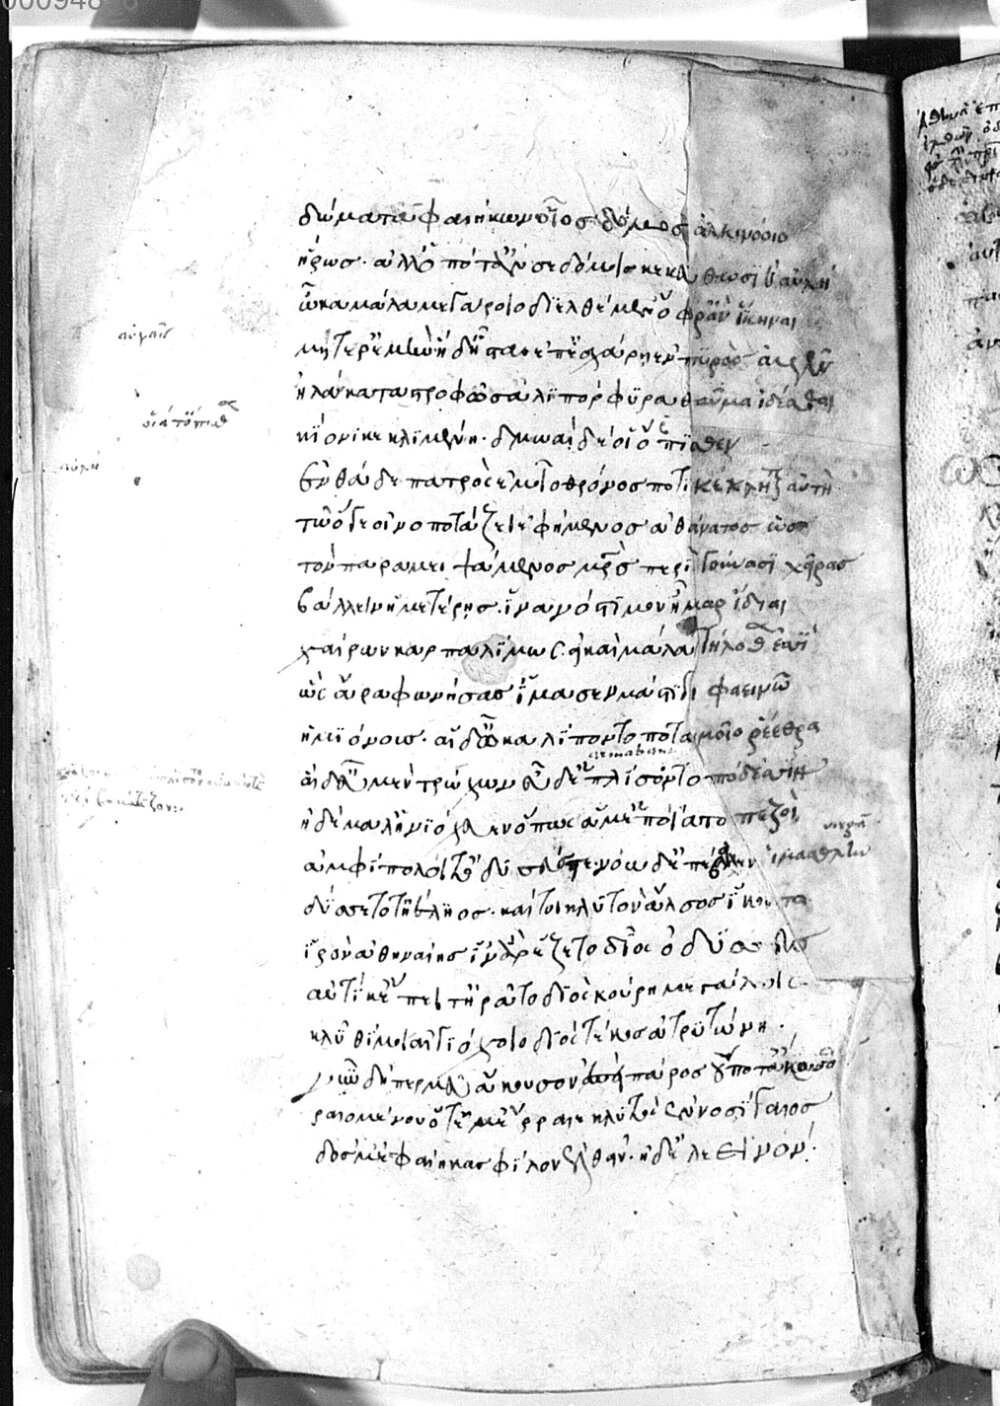 δώματα φαιήκων οἷος δόμος ἀλκινόοιο
ἥρως· ἀλλ' ὁπότ' ἄν σε δόμοι κεκύθωσι καὶ αὐλὴ
ὦκα μάλα μεγάροιο διελθέμεν ὄφρ' ἂν ἵκηαι
μητέρ' ἐμὴν ἡ δ' ἧσται ἐπ' ἐσχάρη ἐν πυρὸς αὐγῆ
ἠλάκατα στροφῶσ' ἁλιπόρφυρα θαῦμα ἰδέσθαι
κίονι κεκλιμένη· δμωαὶ δέ οἱ ὄπισθεν
ἔνθα δὲ πατρὸς ἐμοῖο θρόνος ποτικέκλιται αὐτῆ
τῶ ὅ γε οἰνοποτάζει ἐφήμενος ἀθάνατος ὥς
τὸν παραμειψάμενος μητρὸς περὶ γούνασι χεῖρας
βάλλειν ἡμετέρης· ἵνα νόστιμον ἦμαρ ἴδηαι
χαίρων καρπαλίμως· εἰ καὶ μάλα τηλόθεν ἐσσί
ὣς ἄρα φωνήσασ' ἵμασεν μάστιγι φαεινῆ
ἡμιόνους· αἱ δ' ὦκα λίπον ποταμοῖο ῥέεθρα
αἱ δ' εὖ μὲν τρώχων εὖ δὲ πλίσσοντο πόδεσσιν
ἡ δὲ μάλ' ἡνιόχευεν ὅπως ἅμ' ἑποίατο πεζοὶ
ἀμφίπολοί τ' ὀδυσεύς τε· νόω δ' ἐπέβαλλεν ἱμάσθλην
δύσετο τ' ἠέλιος· καὶ τοὶ κλυτὸν ἄλσος ἵκοντο
ἱρὸν ἀθηναίης ἵν' ἄρ' ἕζετο δῖος ὀδυσσεὺς
αὐτίκ' ἔπειτ' ἠρᾶτο διὸς κούρη μεγάλοιο
κλῦθί μοι αἰγιόχοιο διὸς τέκος ἀτρυτώνη·
νῦν δή πέρ μευ ἄκουσον ἐπεὶ πάρος οὔποτ' ἄκουσας
ῥαιομένου ὅτε μ' ἔρραιε κλυτὸς ἐννοσίγαιος
δός μ' ἐς φαίηκας φίλον ἐλθεῖν· ἠδ' ἐλεεινόν·